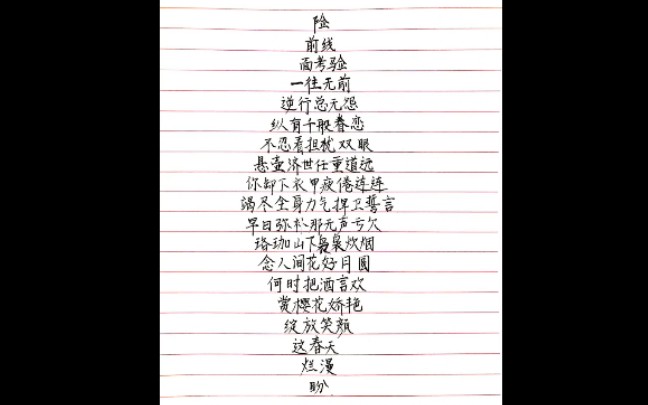 险
前线
面考验
一往无前
逆行总无怨
纵有千般眷恋
不忍看担忧双眼
悬壶济世任重道远
你卸下衣甲疲倦连连
竭尽全身力气捍卫誓言
早日弥补那无声亏欠
珞珈山下袅袅炊烟
念人间花好月圆
何时把酒言欢
赏樱花娇艳
绽放笑颜
这春天
烂漫
盼